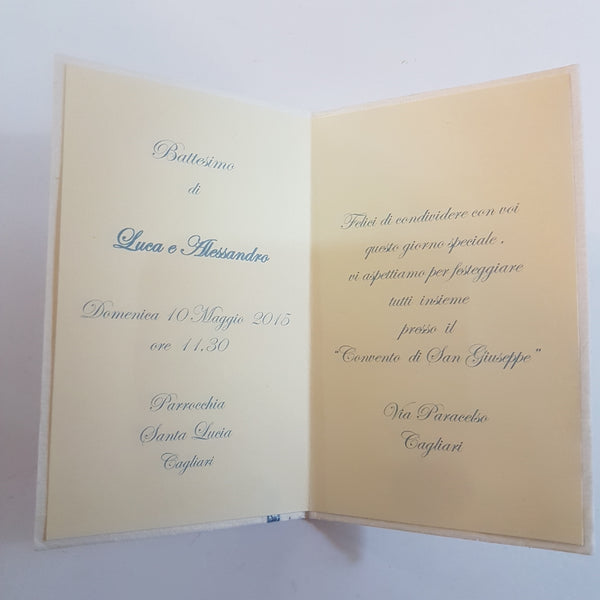 Battesimo
di
Luca e Alessandro
Domenica 10 Maggio 2015
ore 11,30
Parrocchia
Santa Lucia
Cagliari
Felici di condividere con voi
questo giorno speciale,
vi aspettiamo per festeggiare
tutti insieme
presso il
"Convento di San Giuseppe"
Via Paracelso
Cagliari